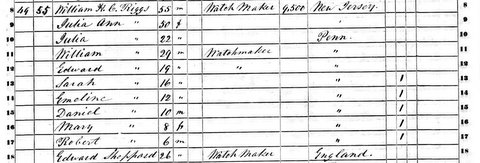 8 49 55 William H. C. Riggs 55 m Watch Maker 9,500 New Jersey. 8
9 Julia Ann " 50 f " 9
10 Julia " 22 " Penn. 10
11 William " 29 m Watchmaker " 11
12 Edward " 19 " " " 12
13 Sarah " 16 " " 1 13
14 Emeline " 12 " " 1 14
15 Daniel " 10 m " 1 15
16 Mary " 8 f " 1 16
17 Robert " 6 m " 1 17
18 Edward Sheppard 26 " Watch Maker England. 18